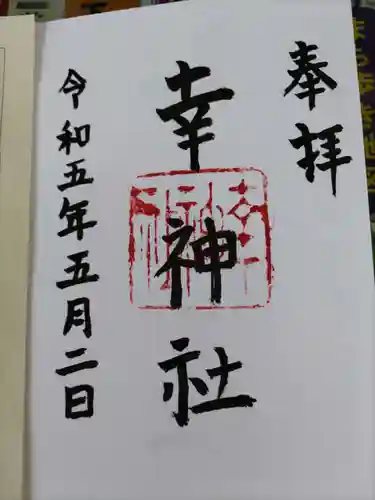 奉拝
幸神社
令和五年五月二日